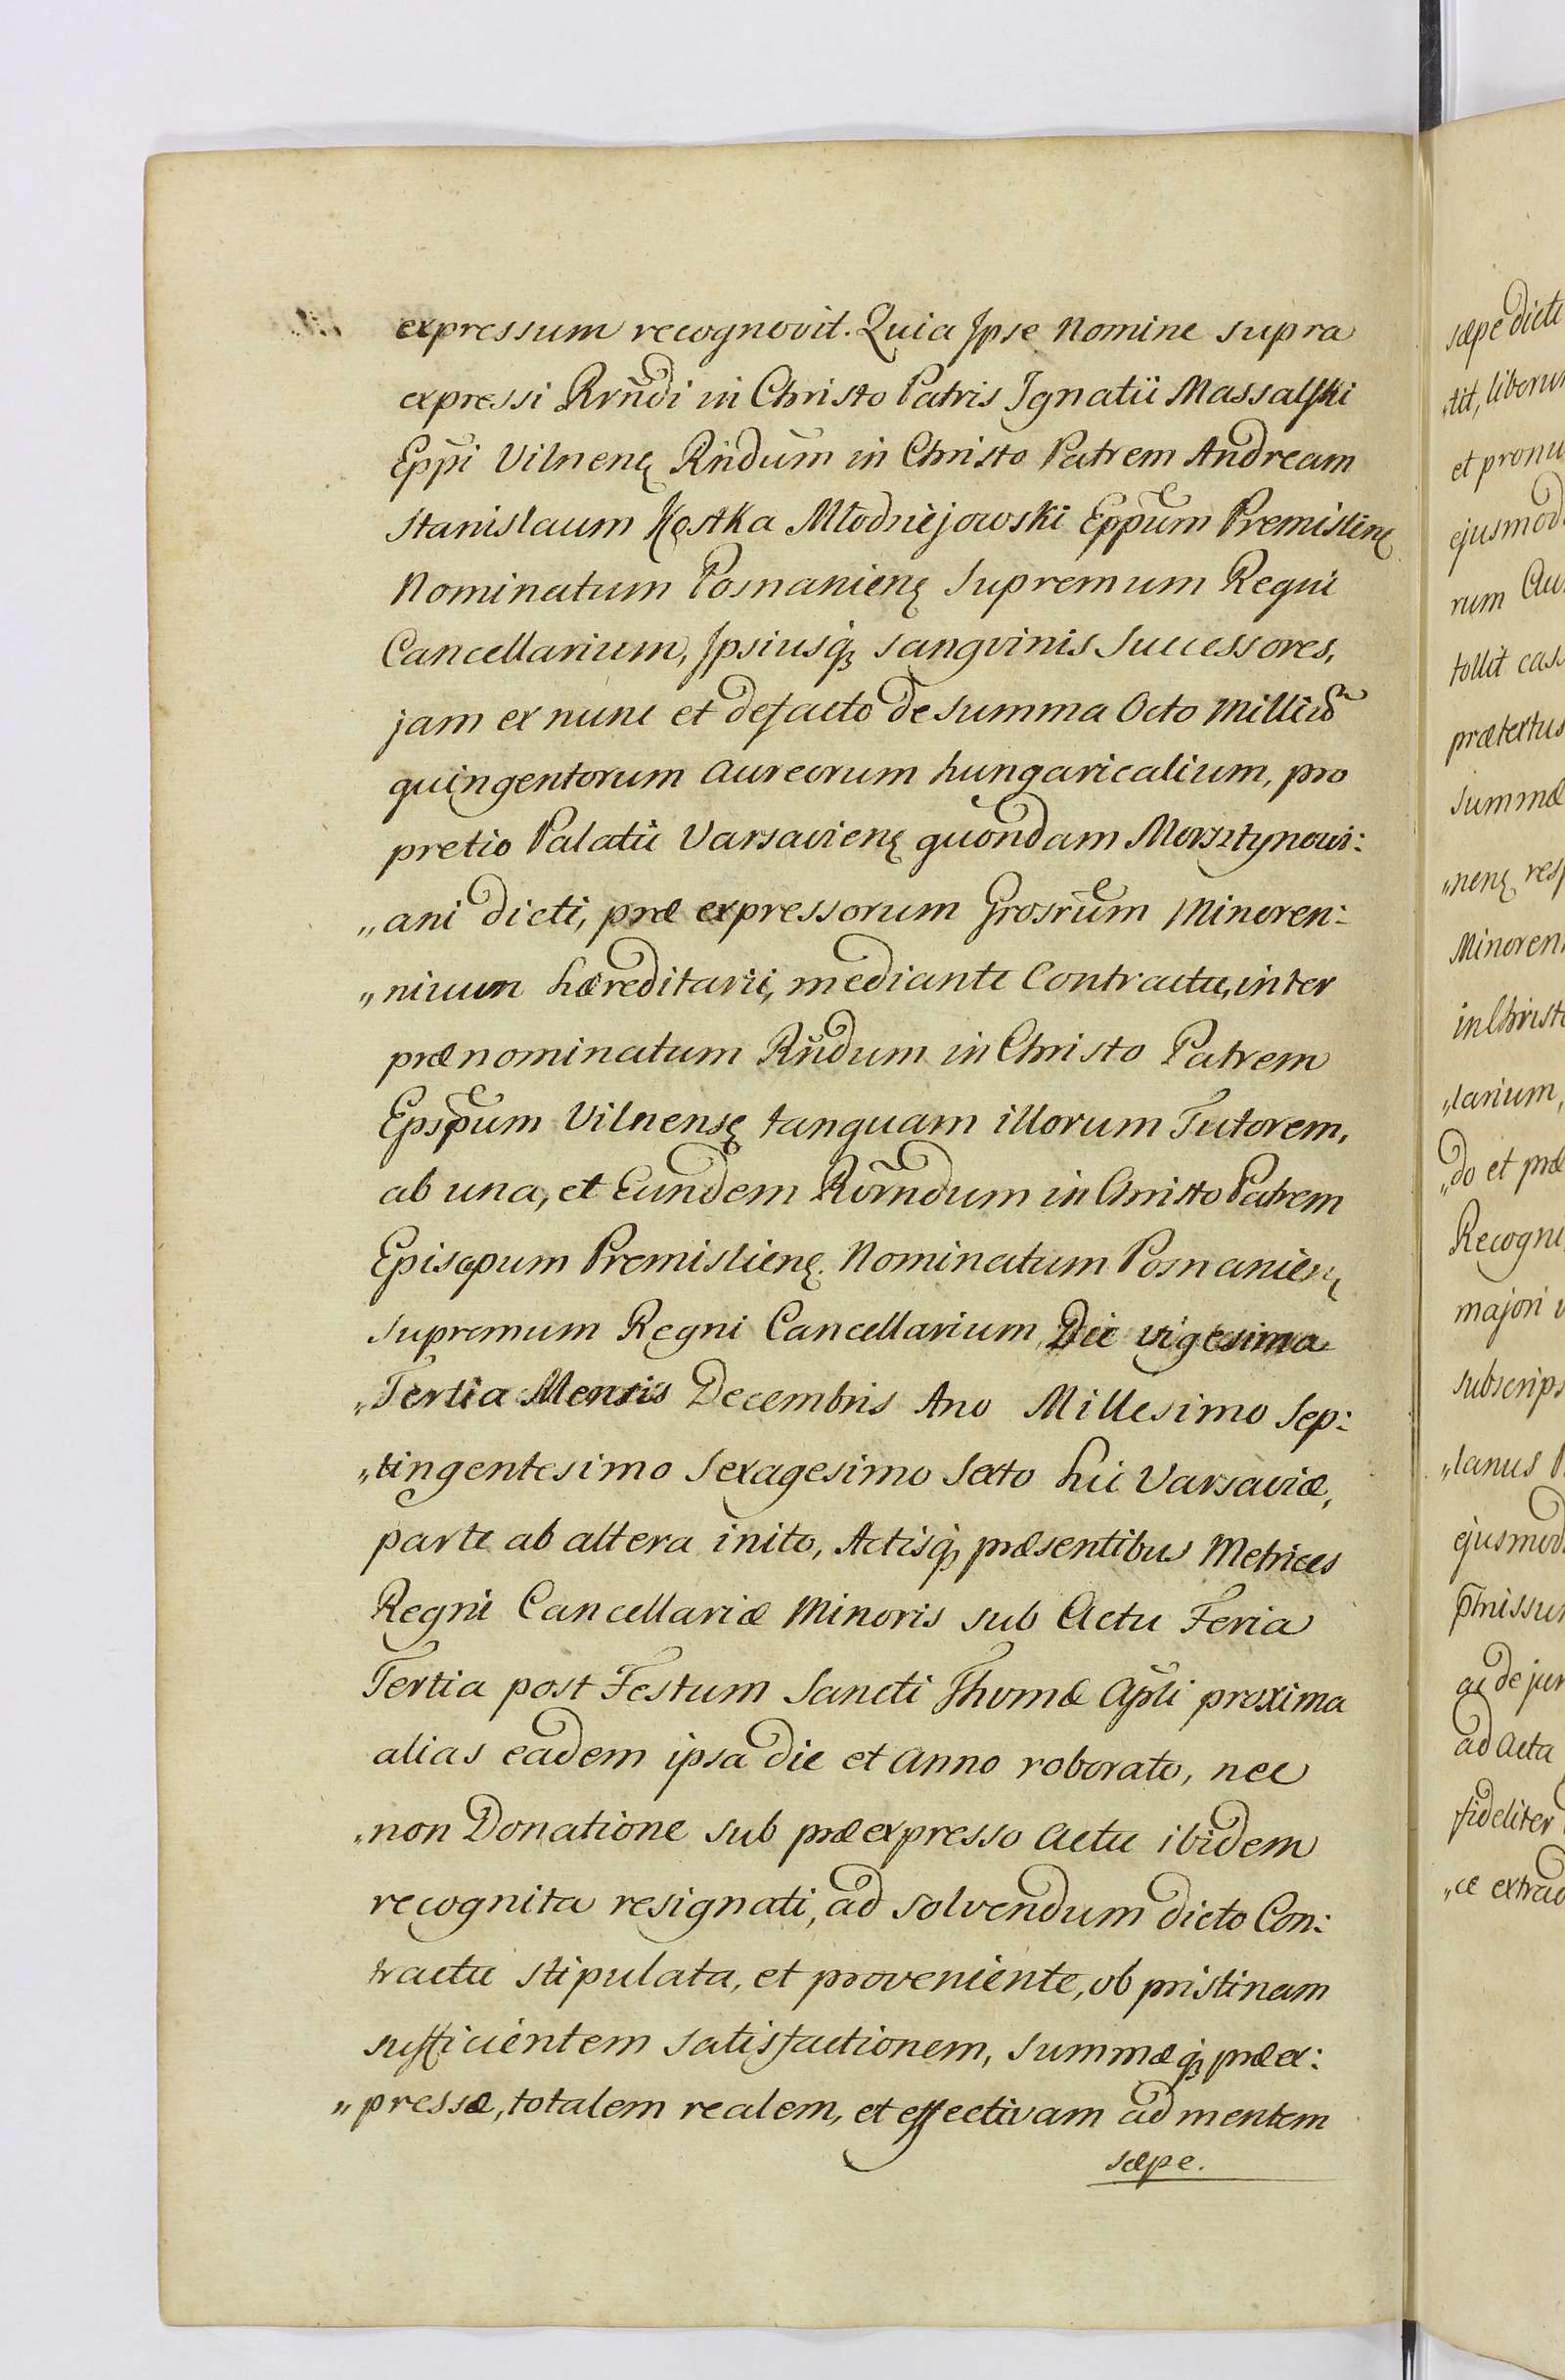 expressum recognovit. Quia Ipse Nomine supra
expressi Rrñdi in Christo Patris Ignatii Massalski
Eppi Vilnenẹ Rñdum in Christo Patrem Andream
Stanislaum Kostka Młodniejowski Eppum Premislienẹ
Nominatum Posnanienẹ Supremum Regni
Cancellarium, Ipsiusq̃ sangvinis Successores,
jam ex nunc et defacto de summa Octo Milliũ
quingentorum Aureorum hungaricalium, pro
pretio Palatii Varsavienẹ quondam Morsztynowi:
„ani dicti, præ expressorum Grosrum Minoren:
„nium hæreditarii, mediante Contractu, inter
prænominatum Rñdum in Christo Patrem
Epsp̃um Vilnensẹ tanquam illorum Tutorem,
ab una, et Eundem Rõrndum in Christo Patrem
Episcpum Premislienẹ. Nominatum Posnanienẹ
Supremum Regni Cancellarium, Die vigesima
„Tertia Mensis Decembris Ano Millesimo Sep:
„tingentesimo Sexagesimo Sexto hii Varsaviæ,
parte ab altera inito, Actisq̃ præsentibus Metrices
Regni Cancellariæ Minoris sub Actu Feria
Tertia post Festum Sancti Thomæ Apli proxima
alias eadem ipsa die et anno roborato, nec
„non Donatione sub præexpresso Actu ibidem
recognita resignati, ad solvendum dicto Con:
tractu stipulata, et proveniente, ob pristinam
sufficientem satisfactionem, summæq̃ præex:
„pressæ, totalem realem, et effectivam ad mentem
sæpe.
sæpe dicti
„tit, liborum
et pronu
ejusmod
rum Au
tollit cas
prætextus
Summæ
„nenẹ res
Minoren
in Christo
„larium,
„do et præ
Recogni
majori
subscrips
„lanus
ejusmod
ac de jur
ad Acta
fideliter
„æ extrad